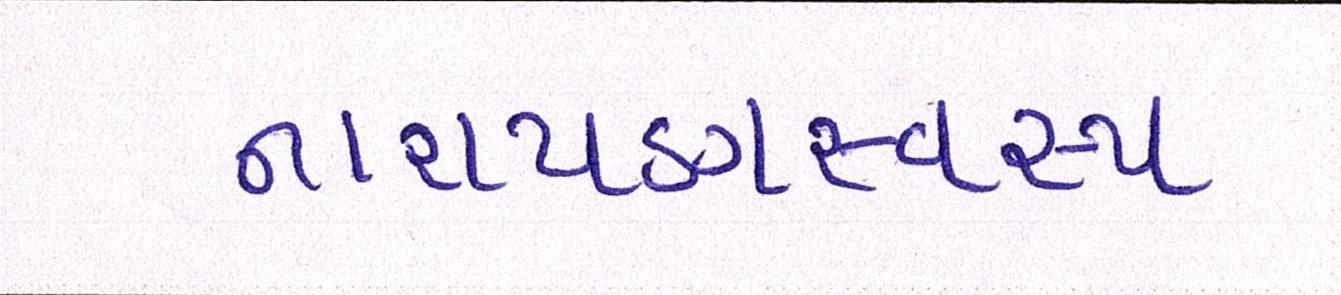 નારાયણસ્વરૂપ